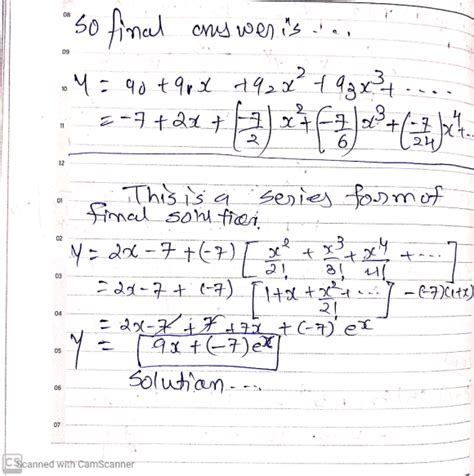 08
so final answer is ...
09
10 y = a0 + a1x + a2x² + a3x³ + ....
11 = -7 + 2x + (-7/2) x² + (-7/6) x³ + (-7/24) x⁴ + ..
12
01 This is a series form of
final solution.
02 y = 2x - 7 + (-7) [ x²/2! + x³/3! + x⁴/4! + ... ]
03 = 2x - 7 + (-7) [ 1 + x + x²/2! + ... ] - (-7)(1+x)
04 = 2x - 7 + 7 + 7x + (-7) eˣ
05 y = 9x + (-7)eˣ
solution ....
06
07
CS Scanned with CamScanner